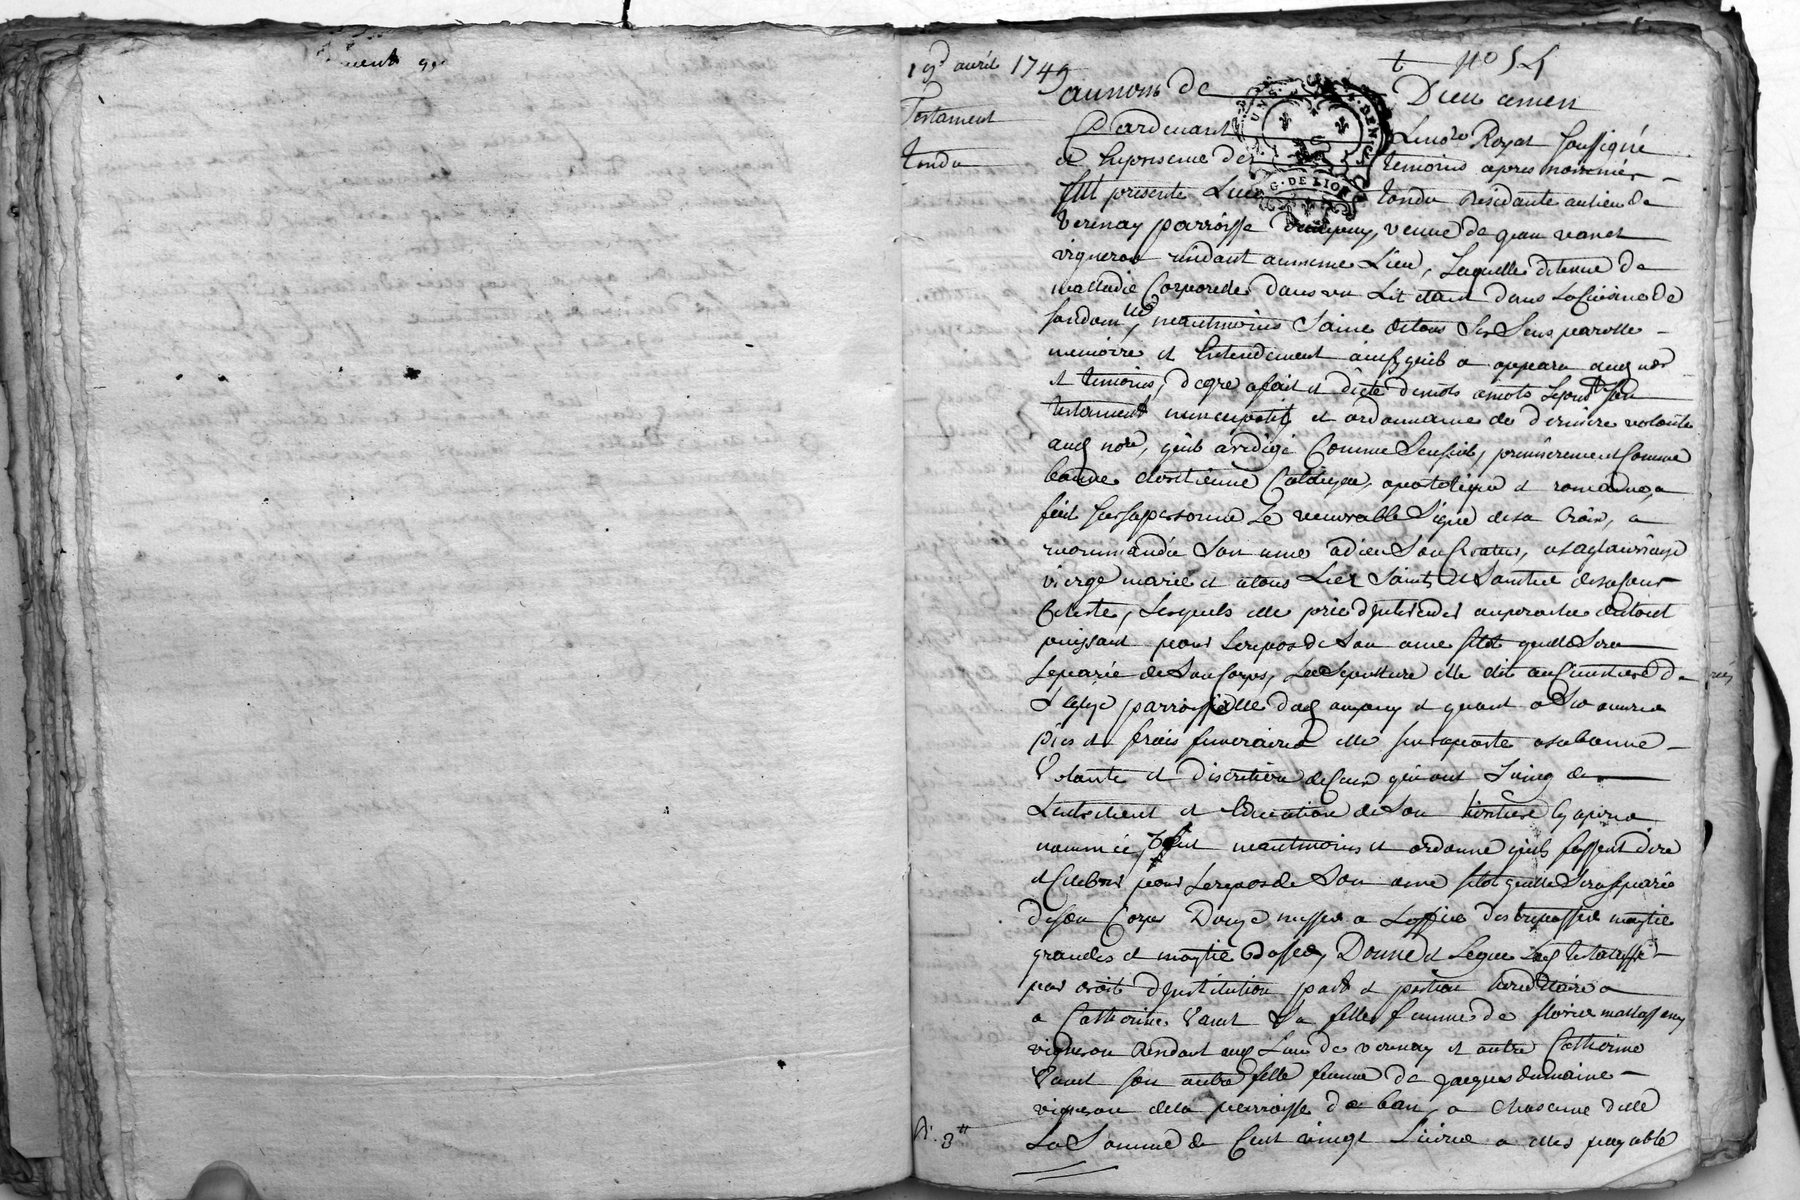 19 avril 1749
Testament
Tondu
au nom de Dieu amen
Pardevant Le no.re Royal soussigné
et En presence des temoins apres nommés
fut presente Tondu Residante au lieu de
Verenay parroisse d'ampuy, veuve de jean vanet
vigneron residant au meme Lieu, Laquelle detenue de
malladie Corporelle dans un Lit etant dans la Cuisine de
son dom.lle, neantmoins Saine de tous Ses Sens parolle
memoire et Entendement ainsy quib a apparu aud no.re
et temoins, de gre a fait et dicté de mots a mots Son
testament nuncupatif et ordonnance de derniere volonté
aud no.re, quib a redigé Comme Sensuit, premierement Comme
bonne chretienne Catolique, apostolique et romaine, a
fait sur sa personne Le venerable Signe de la Croix, a
recommandée Son ame a dieu Son Createur, a la glorieuse
vierge marie et a tous Les Saints et Saintes de la Cour
Celeste, Lesquels elle prie d'Interceder aupres du tout
puissant pour Le repos de Son ame sitot quelle Sera
Separée de Son Corps, La Sepulture elle elit au Cimetiere de
L'eglize parroissialle dud ampuy et quant a Ses œuvres
pies et frais funeraires elle sen raporte a la bonne
Volonté et discretion de Ceux qui ont Soing de
L'entretient et Education de Son heritiere cy apres
nommée, veut neantmoins et ordonne quils fassent dire
et Celebrer pour Le repos de Son ame sitot quelle Sera Separée
de son Corps Douze messes a L'office des trepassés moytié
grandes et moytié basses, Donne et Legue Lad testatrice
par droit d'Institution part et portion hereditaire a
a Catherine Vanet Sa fille femme de fleurie
vigneron Residant aud Lieu de verenay et autre Catherine
Vanet son autre fille femme de jacques dumaine
vigneron de la parroisse de ban, a chascune delle
La Somme de Cent vingt Livres a elles payable
3
G. DE LION